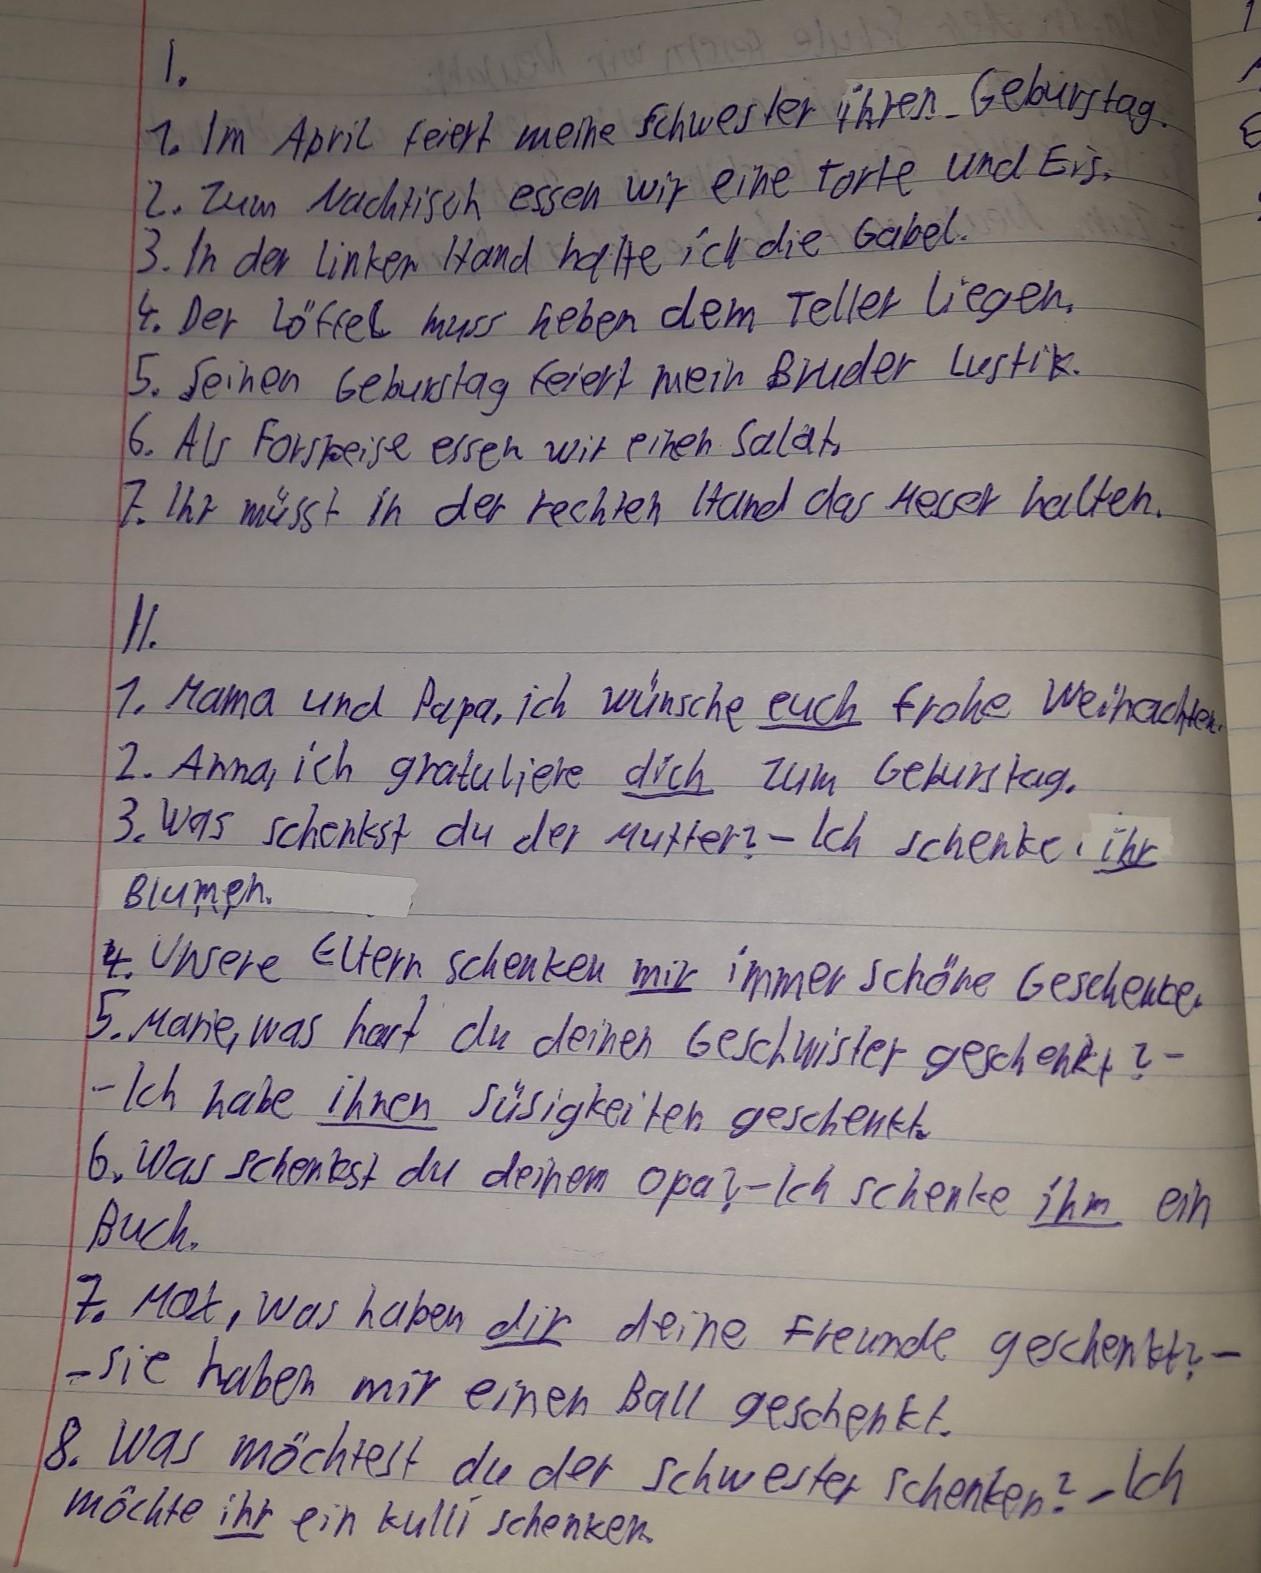 I.
1. Im April feiert meine Schwester ihren Geburstag.
2. Zum Nachtisch essen wir eine Torte und Eis.
3. In der linken Hand halte ich die Gabel.
4. Der Löffel muss neben dem Teller liegen.
5. Seinen Geburstag feiert mein Bruder lustik.
6. Als Forspeise essen wir einen Salat.
7. Ihr müsst in der rechten Hand das Meser halten.
II.
1. Mama und Papa, ich wünsche euch frohe Weihachten.
2. Anna, ich gratuliere dich zum Geburstag.
3. Was schenkst du der Mutter? – Ich schenke ihr
Blumen.
4. Unsere Eltern schenken mir immer schöne Geschenke.
5. Marie, was hast du deinen Geschwister geschenkt? –
- Ich habe ihnen Süsigkeiten geschenkt.
6. Was schenkst du deinem Opa? – Ich schenke ihm ein
Buch.
7. Max, was haben dir deine Freunde geschenkt? –
- Sie haben mir einen Ball geschenkt.
8. Was möchtest du der Schwester schenken? – Ich
möchte ihr ein Kulli schenken.